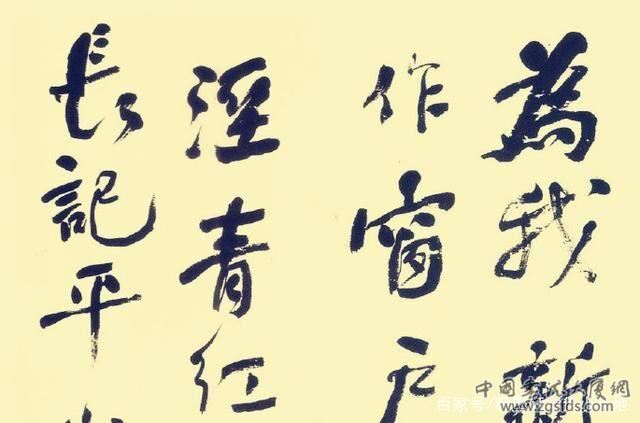 為我新
作窗户
溼青红
長記平
中國書法大廈網
www.zgsfds.com
百家号/